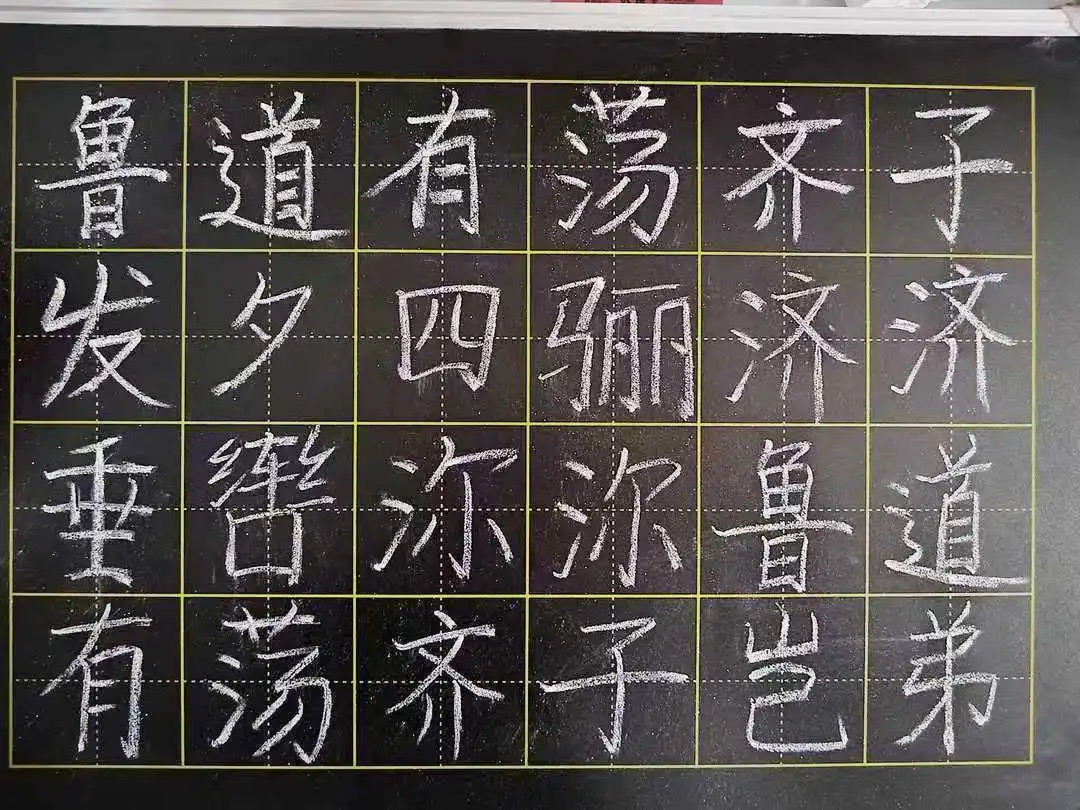 鲁道有荡齐子
发夕四骊济济
垂辔沵沵鲁道
有荡齐子岂弟